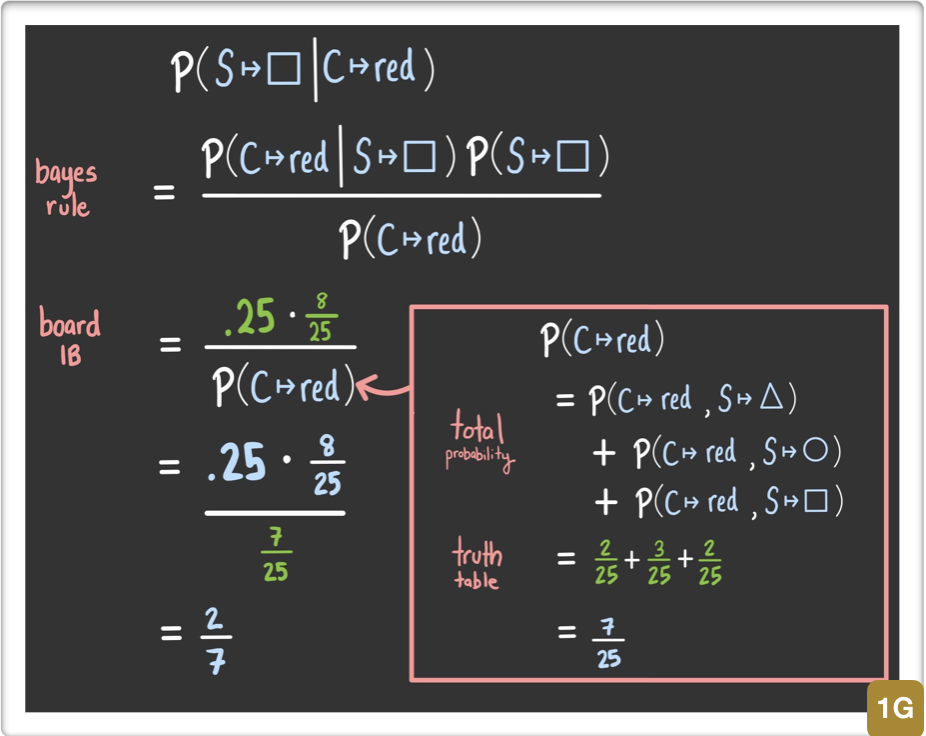 P(S↦□|C↦red)
bayes rule
= P(C↦red|S↦□)P(S↦□) / P(C↦red)
board 1B
= .25 · 8/25 / P(C↦red)
= .25 · 8/25 / 7/25
= 2/7
P(C↦red)
total probability
= P(C↦red, S↦△)
+ P(C↦red, S↦○)
+ P(C↦red, S↦□)
truth table
= 2/25 + 3/25 + 2/25
= 7/25
1G